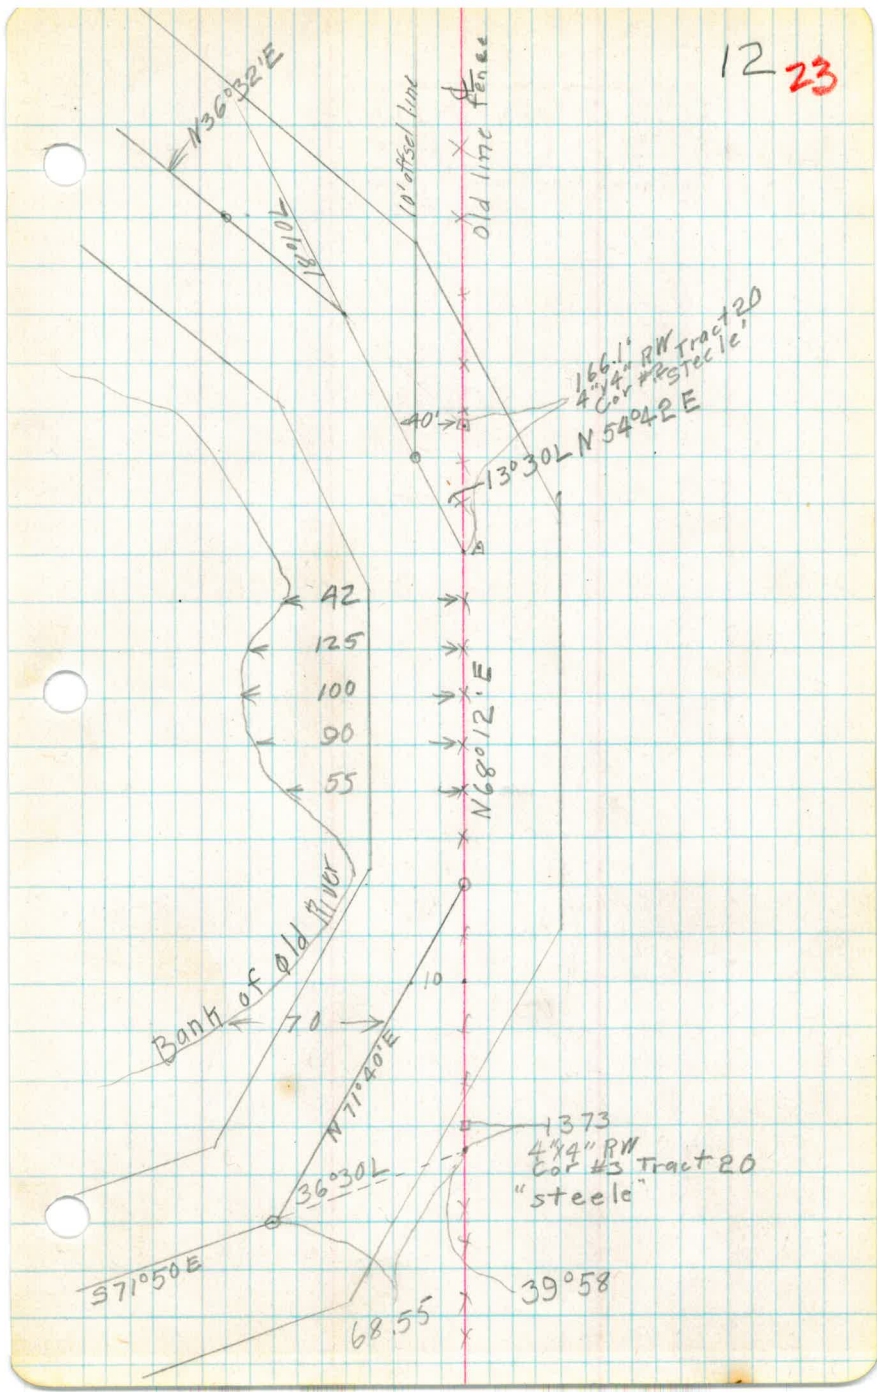 12 23
N36°32'E
10' offset line
℄
old line fence
18°10L
166.1'
4"x4" RW
Cor #2 Tract 20
"Steele"
40'
13°30L N 54°42E
42
125
100
90
55
N68°12'E
Bank of Old River
10
70
N 71°40'E
1373
4"x4" RW
Cor #3 Tract 20
"steele"
36°30L
S71°50E
39°58
68.55